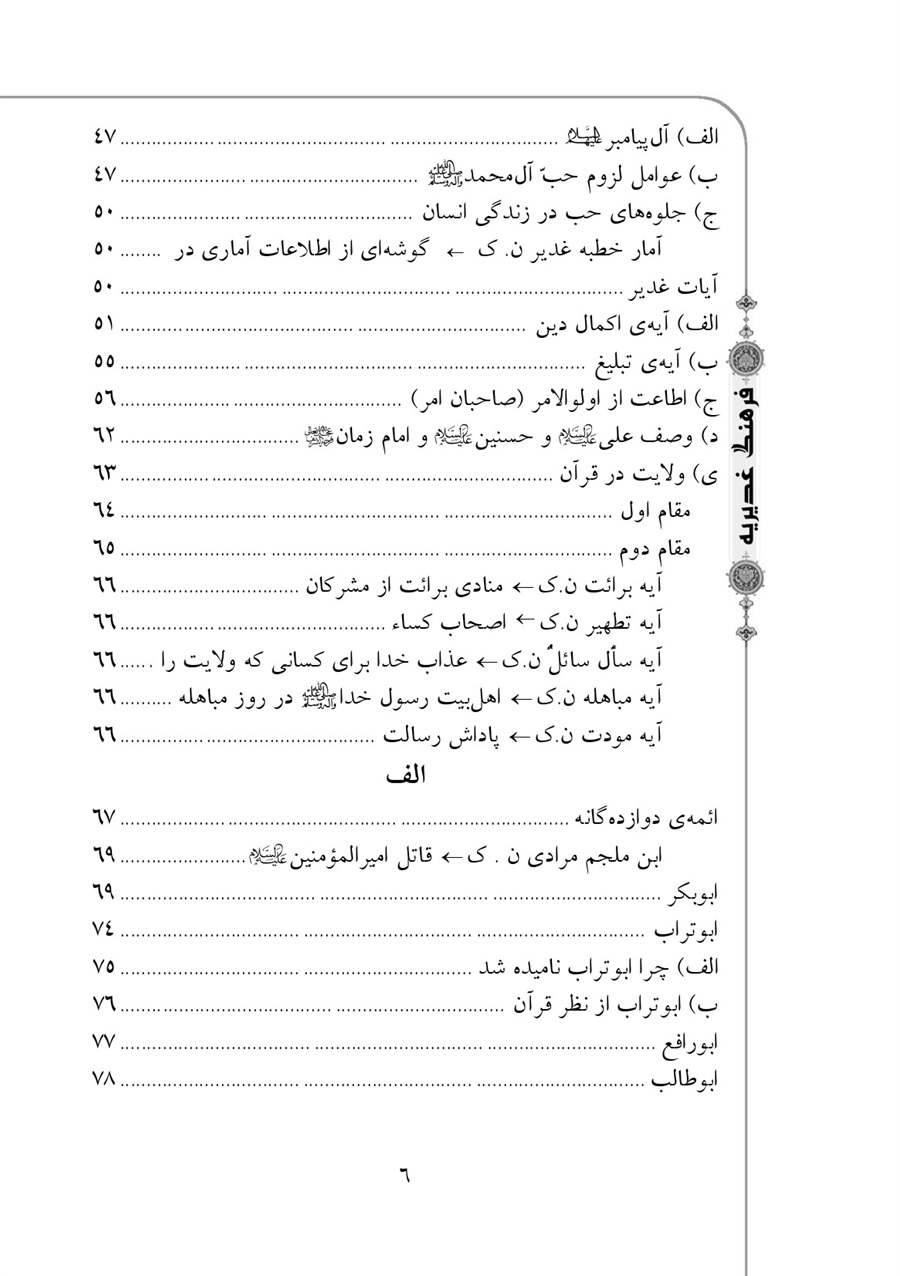 الف) آل‌پیامبر علیهم‌السلام ................................................ ٤٧
ب) عوامل لزوم حبّ آل‌محمد صلی‌الله‌علیه‌وآله‌وسلم ................................................ ٤٧
ج) جلوه‌های حب در زندگی انسان ................................................ ٥٠
آمار خطبه غدیر ن. ک ← گوشه‌ای از اطلاعات آماری در ........ ٥٠
آیات غدیر ................................................ ٥٠
الف) آیه‌ی اکمال دین ................................................ ٥١
ب) آیه‌ی تبلیغ ................................................ ٥٥
ج) اطاعت از اولوالامر (صاحبان امر) ................................................ ٥٦
د) وصف علی علیه‌السلام و حسنین علیه‌السلام و امام زمان ................................ ٦٢
ی) ولایت در قرآن ................................................ ٦٣
مقام اول ................................................ ٦٤
مقام دوم ................................................ ٦٥
آیه برائت ن.ک ← منادی برائت از مشرکان ................................ ٦٦
آیه تطهیر ن.ک ← اصحاب کساء ................................................ ٦٦
آیه سأل سائلٌ ن.ک ← عذاب خدا برای کسانی که ولایت را ...... ٦٦
آیه مباهله ن.ک ← اهل‌بیت رسول خدا صلی‌الله‌علیه‌وآله‌وسلم در روز مباهله .......... ٦٦
آیه مودت ن.ک ← پاداش رسالت ................................................ ٦٦
الف
ائمه‌ی دوازده‌گانه ................................................ ٦٧
ابن ملجم مرادی ن . ک ← قاتل امیرالمؤمنین علیه‌السلام ........................ ٦٩
ابوبکر ................................................ ٦٩
ابوتراب ................................................ ٧٤
الف) چرا ابوتراب نامیده شد ................................................ ٧٥
ب) ابوتراب از نظر قرآن ................................................ ٧٦
ابورافع ................................................ ٧٧
ابوطالب ................................................ ٧٨
فرهنگ غدیریه
٦